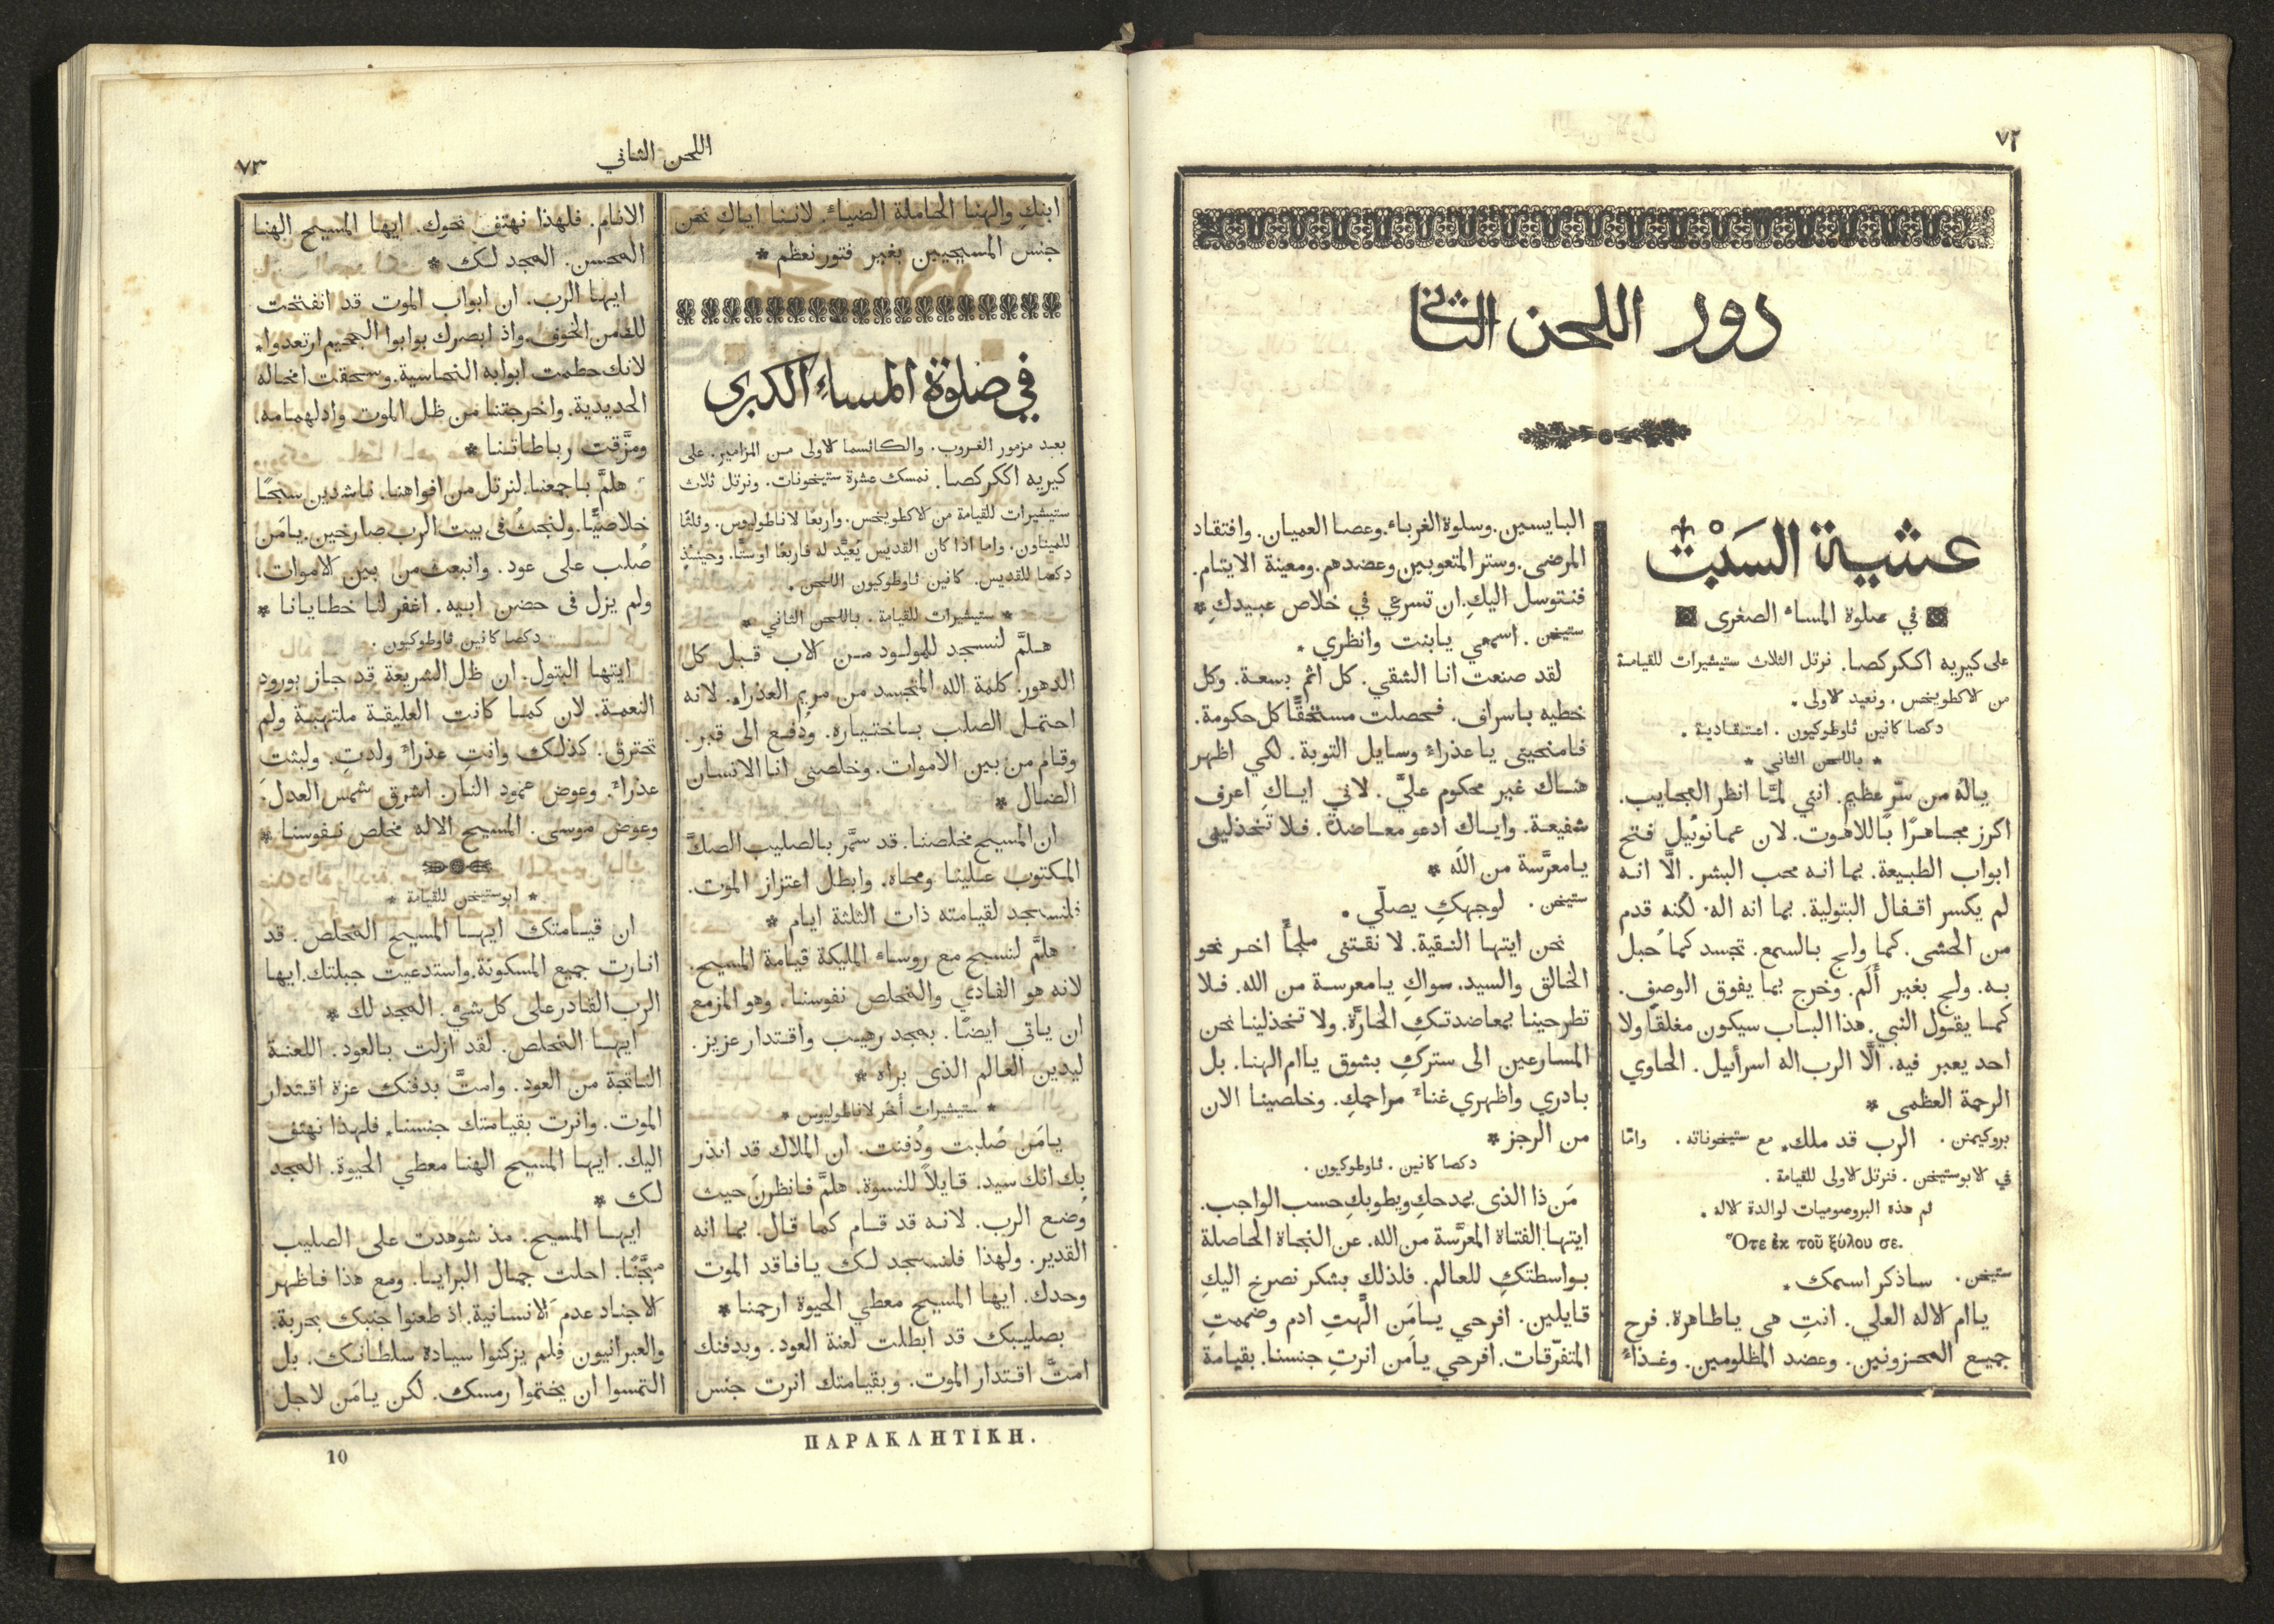 ٧٢
دور اللحن الثاني
عشية السَبْت
في صلوة المساء الصغرى
على كيريه اككركصا. نرتل الثلاث ستيشيرات للقيامة
من الاكطويخس. ونعيد الاولى.
دكصا كانين ثاوطوكيون. اعتقادية.
* باللحن الثاني *
يالهُ من سرّ عظيم. انني لمَّا انظر العجايب.
اكرز مجاهرًا باللاهوت. لان عمانوئيل فتح
ابواب الطبيعة. بما انه محب البشر. الَّا انه
لم يكسر اقفال البتولية. بما انه اله. لكنه قدم
من الحشى. كما ولج بالسمع. تجسد كما حُبل
به. ولج بغير أَلَم. وخرج بما يفوق الوصف.
كما يقول النبي. هذا الباب سيكون مغلقًا ولا
احد يعبر فيه. الَّا الرب اله اسرأيل. الحاوي
الرحمة العظمى *
بروكيمنن. الرب قد ملك. مع ستيخوناته. وامَّا
في الابوستيخن. فنرتل الاولى للقيامة.
ثم هذه البروصوميات لوالدة الاله.
Ὅτε ἐκ τοῦ ξύλου σε.
ستيخن. ساذكر اسمك.
ياام الاله العلي. انتِ هى ياطاهرة. فرح
جميع المحزونين. وعضد المظلومين. وغذاءُ
البايسين. وسلوة الغرباء. وعصا العميان. وافتقاد
المرضى. وستر المتعوبين وعضدهم. ومعينة الايتام.
فنتوسل اليكِ. ان تسرعي في خلاص عبيدكِ *
ستيخن. اسمعي يابنت وانظري.
لقد صنعت انا الشقي. كل اثم بسعة. وكل
خطيه باسراف. فحصلت مستحقًّا كل حكومة.
فامنحيني ياعذراء وسايل التوبة. لكي اظهر
هناك غير محكوم عليَّ. لاني اياكِ اعرف
شفيعة. واياك ادعو معاضدة. فلا تخذليني
يامعرَّسة من الله *
ستيخن. لوجهكِ يصلّي.
نحن ايتها النقية. لا نقتنى ملجأً اخر نحو
الخالق والسيد. سواكِ يامعرسة من الله. فلا
تطرحينا بمعاضدتكِ الحارَّة. ولا تخذلينا نحن
المسارعين الى ستركِ بشوق ياام الهنا. بل
بادري واظهري غناءَ مراحمكِ. وخلصينا الان
من الرجز *
دكصا كانين. ثاوطوكيون.
مَن ذا الذى يمدحكِ ويطوبكِ حسب الواجب.
ايتها الفتاة المعرَّسة من الله. عن النجاة الحاصلة
بواسطتكِ للعالم. فلذلك بشكر نصرخ اليكِ
قايلين. افرحي يامَن الَّهتِ ادم وضممتِ
المتفرّقات. افرحي يامَن انرتِ جنسنا. بقيامة
اللحن الثاني
٧٣
ابنكِ والهنا الحاملة الضياءَ. لاننا اياكِ نحن
جنس المسيحيين بغير فتور نعظم *
في صلوة المساءِ الكبرى
بعد مزمور الغروب. والكاثسما الاولى من المزامير. على
كيريه اككركصا. نمسك عشرة ستيخونات. ونرتل ثلاث
ستيشيرات للقيامة من الاكطويخس. واربعًا لاناطوليوس. وثلثًا
للميناون. واما اذا كان القديس يُعيَّد له فاربعًا اوستًّا. وحينيذٍ
دكصا للقديس. كانين ثاوطوكيون اللحن.
* ستيشيرات للقيامة. باللحن الثاني *
هلمَّ لنسجد للمولود من الاب قبل كل
الدهور. كلمة الله المتجسد من مريم العذراء. لانه
احتمل الصلب باختياره. ودُفع الى قبر.
وقام من بين الاموات. وخلصنى انا الانسان
الضال *
ان المسيح مخلصنا. قد سمَّر بالصليب الصكَّ
المكتوب علينا ومحاه. وابطل اعتزاز الموت.
فلنسجد لقيامته ذات الثلثة ايام *
هلمَّ لنسبح مع روساء المليكة قيامة المسيح.
لانه هو الفادي والمخلص نفوسنا. وهو المزمع
ان ياتى ايضًا. بمجد رهيب واقتدار عزيز.
ليدين العالم الذى براه *
* ستيشيرات أُخَر لاناطوليوس *
يامَن صُلبت ودُفنت. ان الملاك قد انذر
بك انك سيد. قايلاً للنسوة. هلمَّ فانظرنَ حيث
وُضع الرب. لانه قد قام كما قال. بما انه
القدير. ولهذا فلنسجد لك يافاقد الموت
وحدك. ايها المسيح معطي الحيوة ارحمنا *
بصليبك قد ابطلت لعنة العود. وبدفنك
امتَّ اقتدار الموت. وبقيامتك انرت جنس
الانام. فلهذا نهتف نحوك. ايها المسيح الهنا
المحسن. المجد لك *
ايها الرب. ان ابواب الموت قد انفتحت
لك من الخوف. واذ ابصرك بوابوا الجحيم ارتعدوا.
لانك حطمت ابوابه النحاسية. وسحقت امخاله
الحديدية. واخرجتنا من ظل الموت وادلهمامه.
ومزَّقت رباطاتنا *
هلمَّ باجمعنا. لنرتل من افواهنا. ناشدين سبحًا
خلاصيًّا. ولنجثُ فى بيت الرب صارخين. يامَن
صُلب على عود. وانبعث من بين الاموات.
ولم يزل فى حضن ابيه. اغفر لنا خطايانا *
دكصا كانين ثاوطوكيون.
ايتها البتول. ان ظل الشريعة قد جاز بورود
النعمة. لان كما كانت العليقة ملتهبة ولم
تحترق. كذلك وانتِ عذراءُ ولدتِ. ولبثت
عذراءَ. وعوض عمود النار. اشرق شمس العدل.
وعوض موسى. المسيح الاله مخلص نفوسنا *
* ابوستيخن للقيامة *
ان قيامتك ايها المسيح المخلص. قد
انارت جميع المسكونة. واستدعيت جبلتك. ايها
الرب القادر على كل شيءٍ. المجد لك *
ايها المخلص. لقد ازلت بالعود. اللعنة
الناتجة من العود. وامتَّ بدفنك عزة اقتدار
الموت. وانرت بقيامتك جنسنا. فلهذا نهتف
اليك. ايها المسيح الهنا معطي الحيوة. المجد
لك *
ايها المسيح. مذ شوهدت على الصليب
احلت جمال البرايا. ومع هذا فاظهر
الاجناد عدم الانسانية. اذ طعنوا جنبك بحربة.
والعبرانيون فلم يزكنوا سيادة سلطانك. بل
التمسوا ان يختموا رمسك. لكن يامَن لاجل
ΠΑΡΑΚΛΗΤΙΚΗ.
10